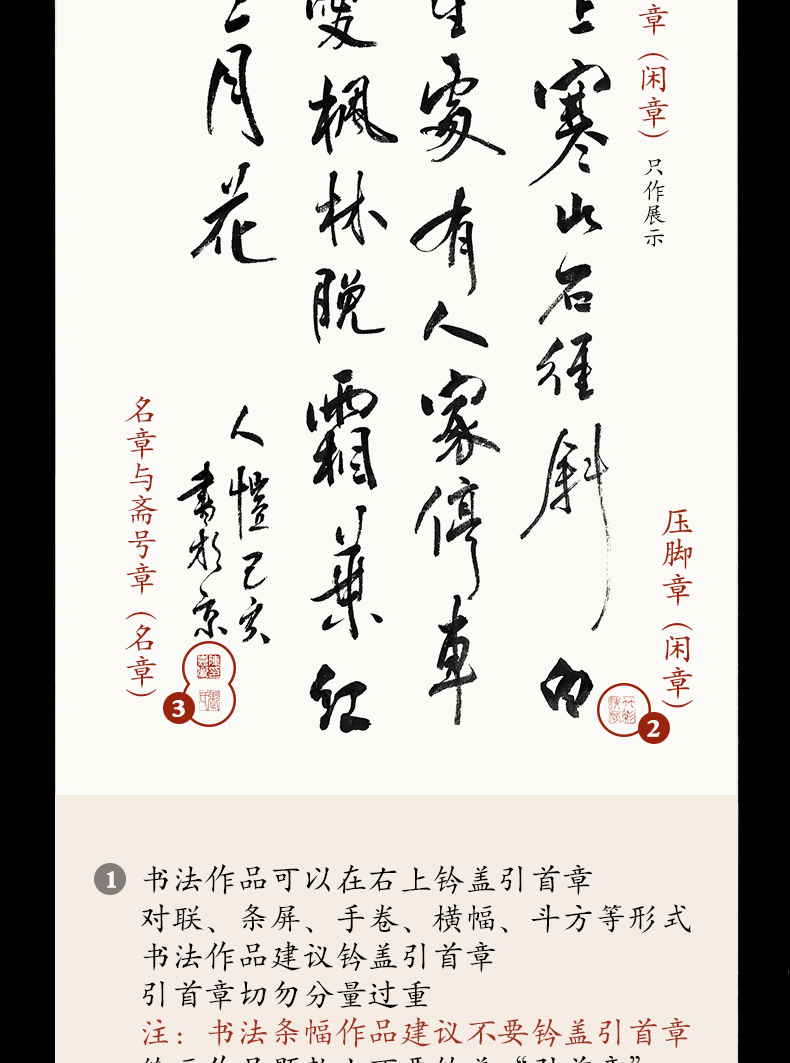 章（闲章）
只作展示
上寒山石徑斜白
生處有人家停車
楓林晚霜葉紅
二月花
人愷己亥
書於京
压脚章（闲章）
2
名章与斋号章（名章）
3
1 书法作品可以在右上钤盖引首章
对联、条屏、手卷、横幅、斗方等形式
书法作品建议钤盖引首章
引首章切勿分量过重
注：书法条幅作品建议不要钤盖引首章